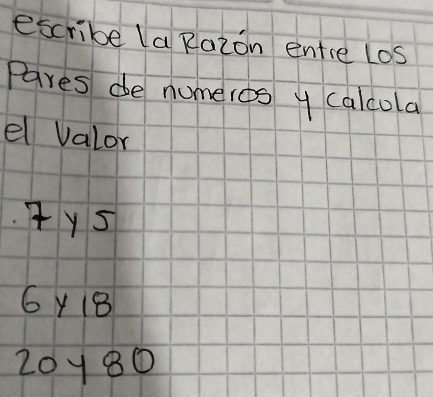 escribe la Razón entre los
Pares de numeros y calcola
el Valor
. 7 y 5
6 y 18
20 y 80